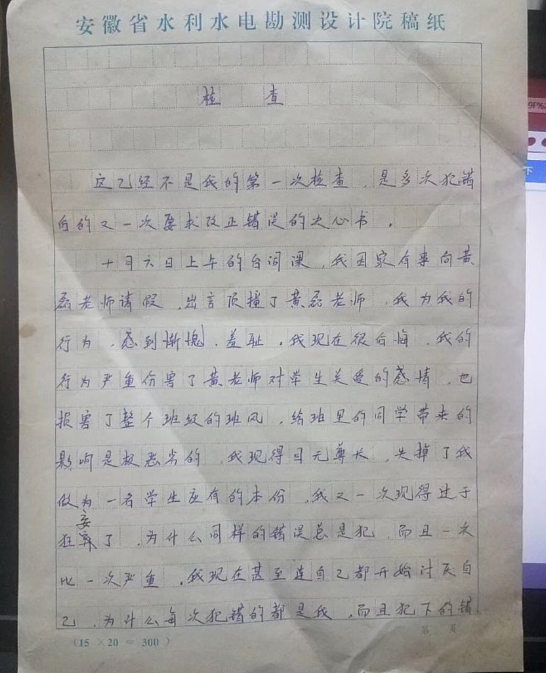 安徽省水利水电勘测设计院稿纸
检 查
这已经不是我的第一次检查，是多次犯错
后的又一次要求改正错误的决心书。
十月六日上午的台词课，我因家有事向黄
磊老师请假，出言顶撞了黄磊老师，我为我的
行为，感到惭愧，羞耻，我现在很后悔，我的
行为严重伤害了黄老师对学生关爱的感情，也
损害了整个班级的班风，给班里的同学带来的
影响是极恶劣的，我现得目无尊长，失掉了我
做为一名学生应有的本份，我又一次现得过于
狂妄了，为什么同样的错误总是犯，而且一次
比一次严重，我现在甚至连自己都开始讨厌自
己，为什么每次犯错的都是我，而且犯下的错
(15 × 20 = 300)
第 页